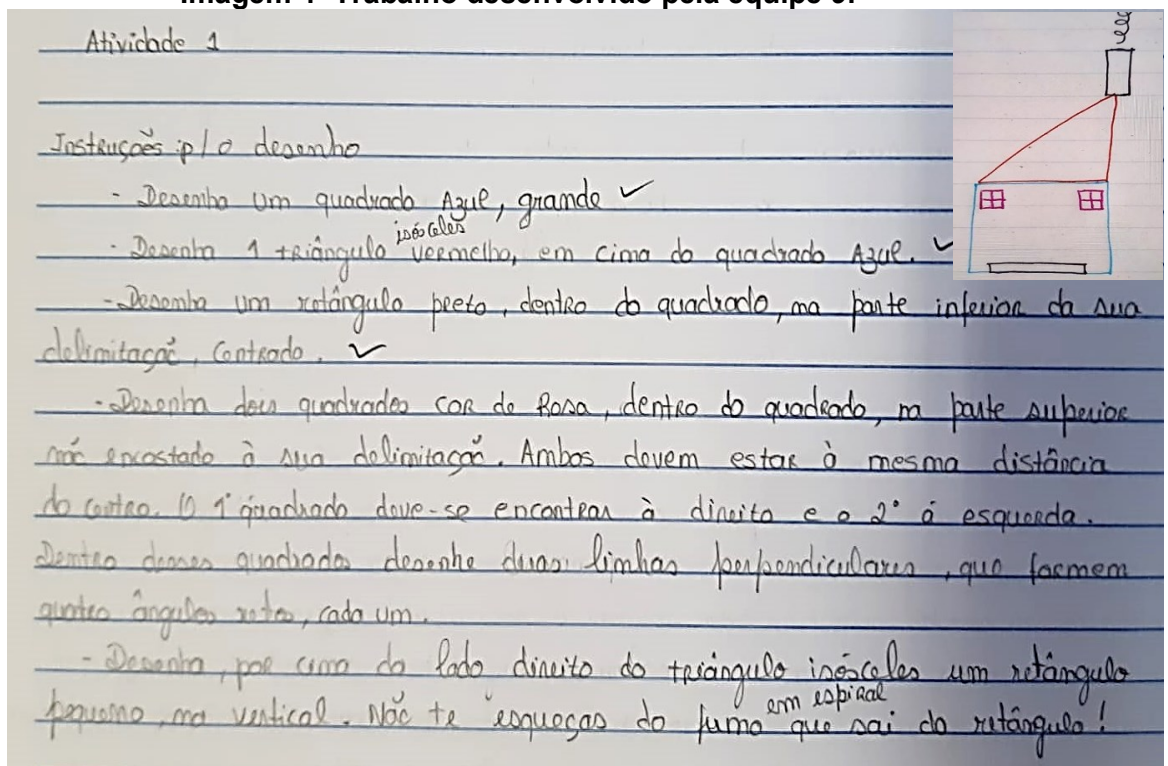 Atividade 1
Instruções p/ o desenho
- Desenha um quadrado Azul, grande ✓
isósceles
- Desenha 1 triângulo vermelho, em cima do quadrado Azul. ✓
- Desenha um retângulo preto, dentro do quadrado, na parte inferior da sua
delimitação, Centrado. ✓
- Desenha dois quadrados cor de Rosa, dentro do quadrado, na parte superior
não encostado à sua delimitação. Ambos devem estar à mesma distância
do centro. O 1º quadrado deve-se encontrar à direita e o 2º á esquerda.
Dentro desses quadrados desenhe duas linhas perpendiculares, que formem
quatro ângulos retos, cada um.
- Desenha, por cima do lado direito do triângulo isósceles um retângulo
em espiral
pequeno, na vertical. Não te esqueças do fumo que sai do retângulo!